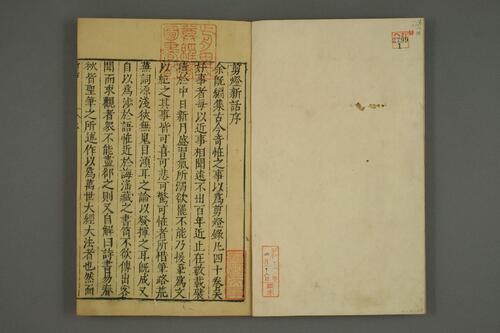 剪燈新話序
余既編集古今奇怪之事以爲剪燈錄凡四十卷矣
好事者每以近事相聞遠不出百年近止在數載襞
積於中日新月盛習氣所溺欲罷不能乃援筆爲文
以紀之其事皆可喜可悲可驚可怪者所惜筆路荒
蕪詞源淺狹無嵬目鴻耳之論以發揮之耳既成又
自以爲涉於語怪近於誨淫藏之書笥不欲傳出客
聞而求觀者衆不能盡郤之則又自解曰詩書易春
秋皆聖筆之所述作以爲萬世大經大法者也然而
2799
1